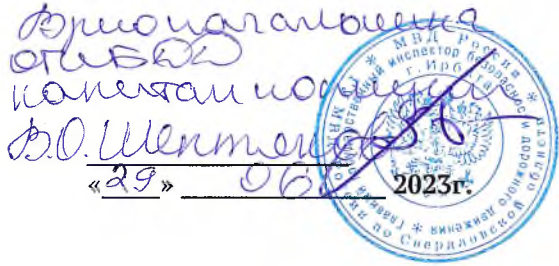 Врио начальника
ОГИБДД
капитан полиции
В.О. Шептяков
«29» 06 2023г.
МВД России
инспектор безопасности дорожного движения
г. Ирбита
Главный
по Свердловской области